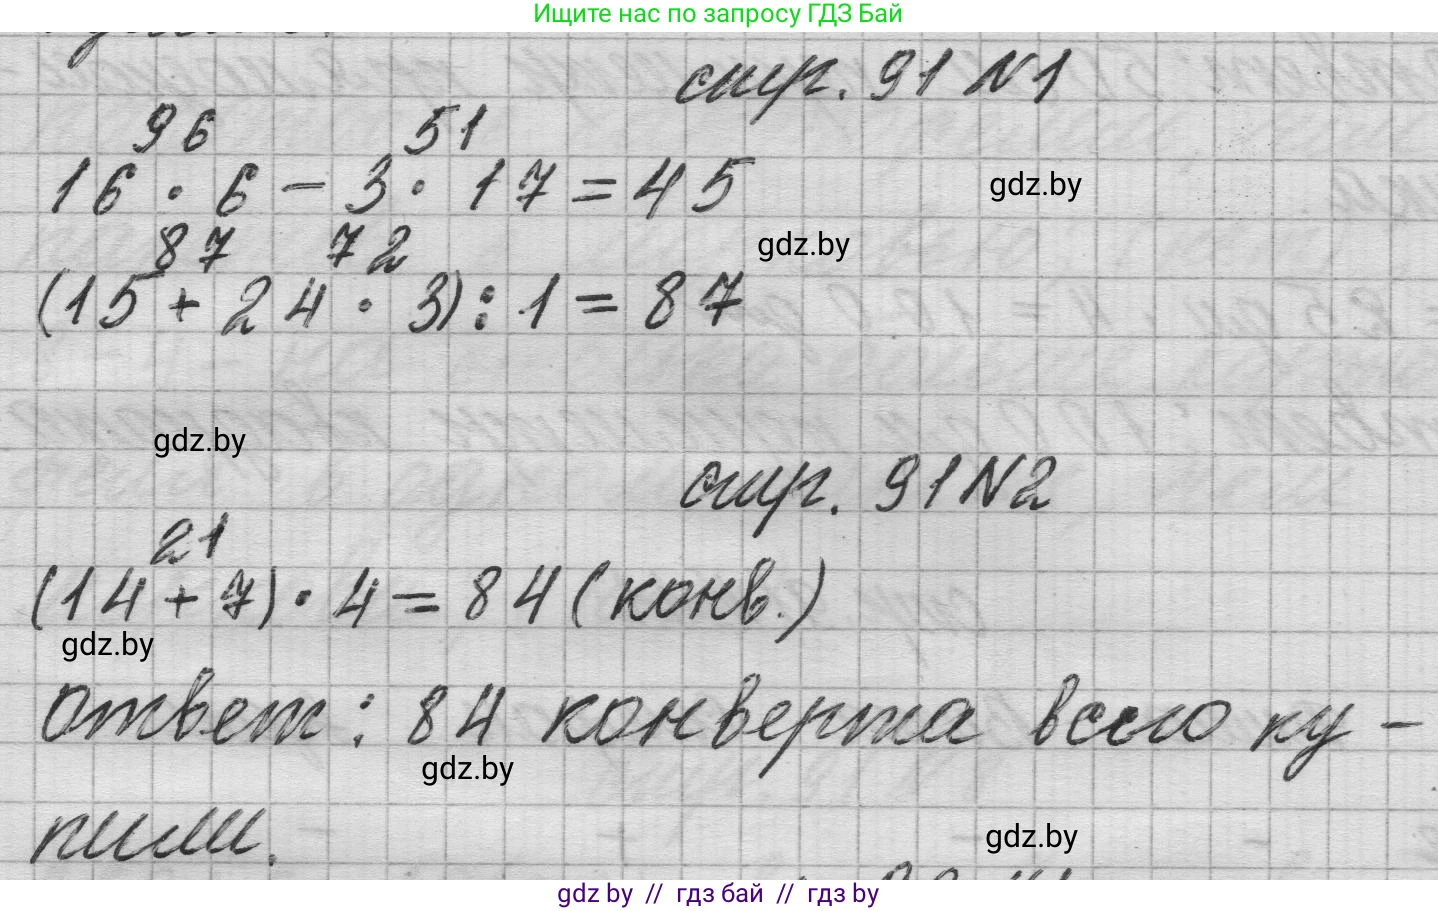 Ищите нас по запросу ГДЗ Бай
стр. 91 N1
96 51
16 · 6 - 3 · 17 = 45
gdz.by
87 72
gdz.by
(15 + 24 · 3) : 1 = 87
gdz.by
стр. 91 N2
21
(14 + 7) · 4 = 84 (конв.)
gdz.by
Ответ: 84 конверта всего ку-
gdz.by
пили.
gdz.by
gdz.by // гдз бай // гдз by